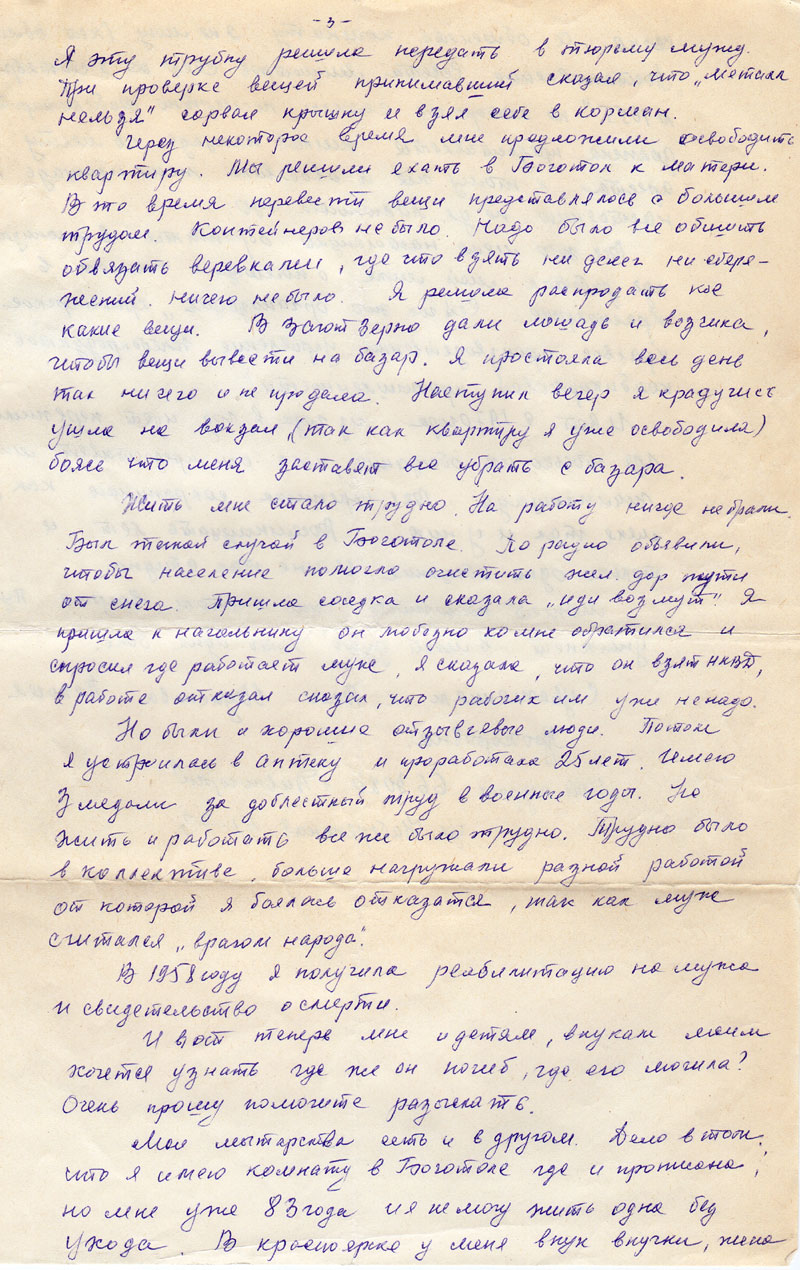 - 3 -
Я эту трубку решила передать в тюрему мужу.
При проверке вещей принимавший сказал, что „металл
нельзя" сорвал крышку и взял себе в корман.
Через некоторое время мне предложили освободить
квартиру. Мы решили ехать в Боготол к матери.
В то время перевезти вещи представлялось с большим
трудом. Контейнеров не было. Надо было все обшить
обвязать веревками, где что взять ни денег ни сбере-
жений. ничего не было. Я решила распродать кое
какие вещи. В Заготзерно дали лошадь и возчика,
чтобы вещи вывести на базар. Я простояла весь день
так ничего и не продала. Наступил вечер я крадучись
ушла на вокзал (так как квартиру я уже освободила)
боясь что меня заставят все убрать с базара.
Жить мне стало трудно. На работу нигде не брали.
Был такой случай в Боготоле. По радио объявили,
чтобы население помогло очистить жел. дор пути
от снега. Пришла соседка и сказала „иди возмут"! Я
пришла к начальнику он любезно ко мне обратился и
спросил где работает муж, я сказала, что он взят НКВД,
в работе отказал сказал, что рабочих им уже не надо.
Но были и хорошие отзывчевые люди. Потом
я устроилась в аптеку и проработала 25 лет. Имею
3 медали за доблестный труд в военные годы. Но
жить и работать все же было трудно. Трудно было
в коллективе, больше нагружали разной работой
от которой я боялась отказатся, так как муж
считался „врагом народа".
В 1958 году я получила реабилитацию на мужа
и свидетельство о смерти.
И вот теперь мне и детям, внукам моим
хочется узнать где же он погиб, где его могила?
Очень прошу помогите разыскать.
Мои мытарства есть и в другом. Дело в том,
что я имею комнату в Боготоле где и прописана,
но мне уже 83 года и я не могу жить одна без
ухода. В красноярске у меня внук внучки, жена